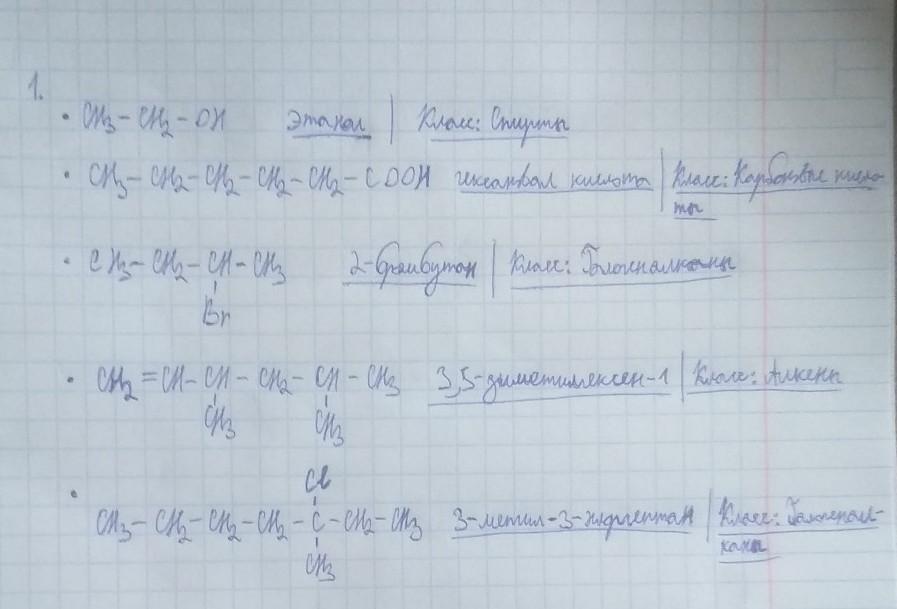 1.
• CH3 - CH2 - OH этанол | Класс: Спирты
• CH3 - CH2 - CH2 - CH2 - CH2 - COOH гексановая кислота | Класс: Карбоновые кисло-
ты
• CH3 - CH2 - CH - CH3 2-бромбутан | Класс: Галогеналканы
Br
• CH2 = CH - CH - CH2 - CH - CH3 3,5-диметилгексен-1 | Класс: Алкены
CH3 CH3
Cl
• CH3 - CH2 - CH2 - CH2 - C - CH2 - CH3 3-метил-3-хлоргептан | Класс: Галогенал-
CH3 каны